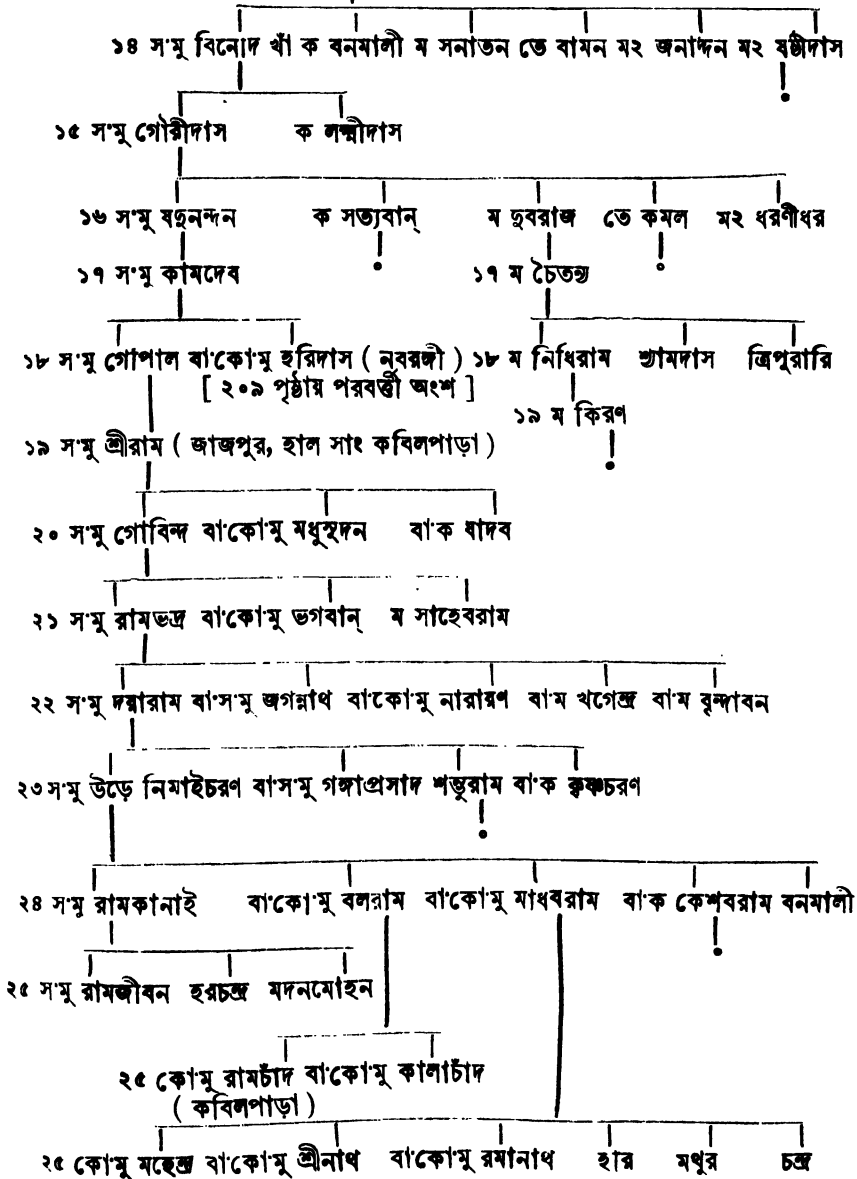 ১৪ স·মু বিনোদ খাঁ ক বনমালী ম সনাতন তে বামন ম২ জনার্দ্দন ম২ ষষ্ঠীদাস
১৫ স·মু গৌরীদাস ক লক্ষ্মীদাস
১৬ স·মু যদুনন্দন ক সত্যবান্ ম দুবরাজ তে কমল ম২ ধরণীধর
১৭ স·মু কামদেব ১৭ ম চৈতন্য
১৮ স·মু গোপাল বা·কো·মু হরিদাস ( নবরঙ্গী ) ১৮ ম নিধিরাম শ্যামদাস ত্রিপুরারি
[ ২০৯ পৃষ্ঠায় পরবর্ত্তী অংশ ]
১৯ ম কিরণ
১৯ স·মু শ্রীরাম ( জাজপুর, হাল সাং কবিলপাড়া )
২০ স·মু গোবিন্দ বা·কো·মু মধুসূদন বা·ক যাদব
২১ স·মু রামভদ্র বা·কো·মু ভগবান্ ম সাহেবরাম
২২ স·মু দয়ারাম বা·স·মু জগন্নাথ বা·কো·মু নারায়ণ বা·ম খগেন্দ্র বা·ম বৃন্দাবন
২৩ স·মু উড়ে নিমাইচরণ বা·স·মু গঙ্গাপ্রসাদ শম্ভুরাম বা·ক কৃষ্ণচরণ
২৪ স·মু রামকানাই বা·কো·মু বলরাম বা·কো·মু মাধবরাম বা·ক কেশবরাম বনমালী
২৫ স·মু রামজীবন হরচন্দ্র মদনমোহন
২৫ কো·মু রামচাঁদ বা·কো·মু কালাচাঁদ
( কবিলপাড়া )
২৫ কো·মু মহেন্দ্র বা·কো·মু শ্রীনাথ বা·কো·মু রমানাথ হার মথুর চন্দ্র